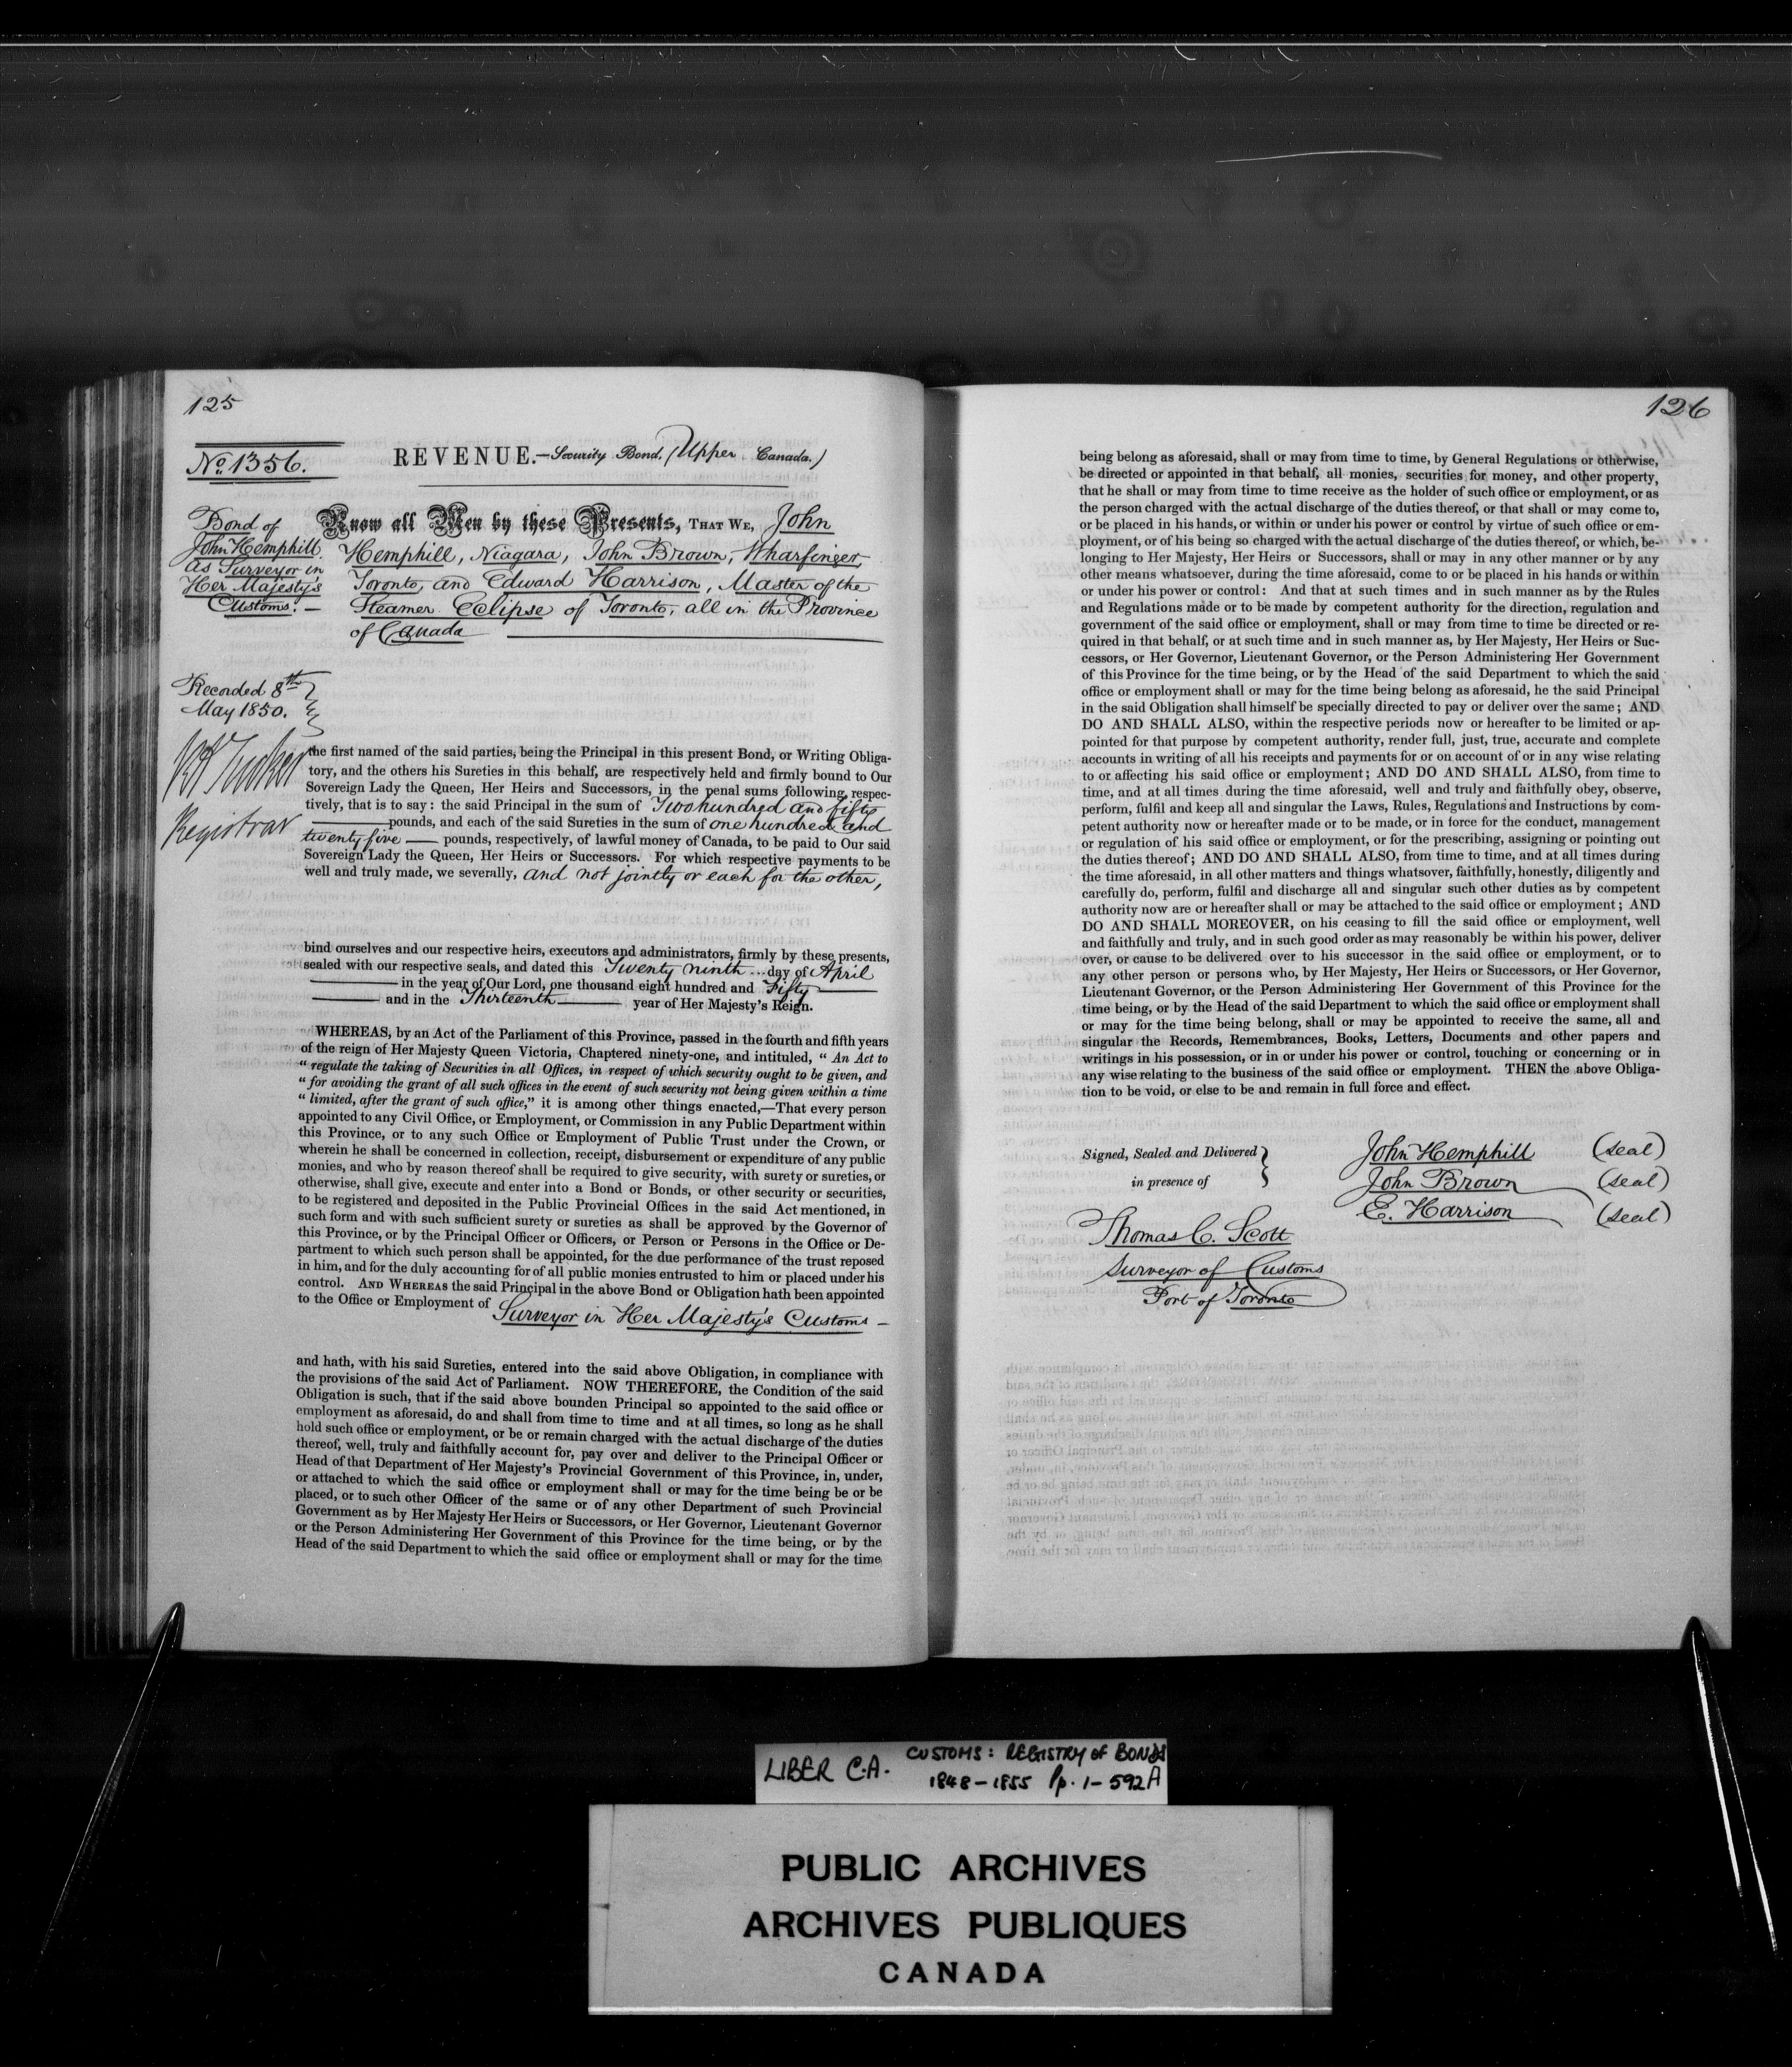 125
No. 1356.
REVENUE.—Security Bond. (Upper Canada.)
Bond of
John Hemphill
as Surveyor in
Her Majesty's
Customs. —
Recorded 8th
May 1850.
Registrar
Know all Men by these Presents, THAT WE, John
Hemphill, Niagara, John Brown, Wharfinger,
Toronto, and Edward Harrison, Master of the
Steamer Eclipse of Toronto, all in the Province
of Canada
the first named of the said parties, being the Principal in this present Bond, or Writing Obliga-
tory, and the others his Sureties in this behalf, are respectively held and firmly bound to Our
Sovereign Lady the Queen, Her Heirs and Successors, in the penal sums following, respec-
tively, that is to say: the said Principal in the sum of Two hundred and fifty
pounds, and each of the said Sureties in the sum of one hundred and
twenty five — pounds, respectively, of lawful money of Canada, to be paid to Our said
Sovereign Lady the Queen, Her Heirs or Successors. For which respective payments to be
well and truly made, we severally, and not jointly or each for the other,
bind ourselves and our respective heirs, executors and administrators, firmly by these presents,
sealed with our respective seals, and dated this Twenty ninth ... day of April
in the year of Our Lord, one thousand eight hundred and Fifty
and in the Thirteenth year of Her Majesty's Reign.
WHEREAS, by an Act of the Parliament of this Province, passed in the fourth and fifth years
of the reign of Her Majesty Queen Victoria, Chaptered ninety-one, and intituled, " An Act to
" regulate the taking of Securities in all Offices, in respect of which security ought to be given, and
" for avoiding the grant of all such offices in the event of such security not being given within a time
" limited, after the grant of such office," it is among other things enacted,—That every person
appointed to any Civil Office, or Employment, or Commission in any Public Department within
this Province, or to any such Office or Employment of Public Trust under the Crown, or
wherein he shall be concerned in collection, receipt, disbursement or expenditure of any public
monies, and who by reason thereof shall be required to give security, with surety or sureties, or
otherwise, shall give, execute and enter into a Bond or Bonds, or other security or securities,
to be registered and deposited in the Public Provincial Offices in the said Act mentioned, in
such form and with such sufficient surety or sureties as shall be approved by the Governor of
this Province, or by the Principal Officer or Officers, or Person or Persons in the Office or De-
partment to which such person shall be appointed, for the due performance of the trust reposed
in him, and for the duly accounting for of all public monies entrusted to him or placed under his
control. AND WHEREAS the said Principal in the above Bond or Obligation hath been appointed
to the Office or Employment of Surveyor in Her Majesty's Customs —
and hath, with his said Sureties, entered into the said above Obligation, in compliance with
the provisions of the said Act of Parliament. NOW THEREFORE, the Condition of the said
Obligation is such, that if the said above bounden Principal so appointed to the said office or
employment as aforesaid, do and shall from time to time and at all times, so long as he shall
hold such office or employment, or be or remain charged with the actual discharge of the duties
thereof, well, truly and faithfully account for, pay over and deliver to the Principal Officer or
Head of that Department of Her Majesty's Provincial Government of this Province, in, under,
or attached to which the said office or employment shall or may for the time being be or be
placed, or to such other Officer of the same or of any other Department of such Provincial
Government as by Her Majesty Her Heirs or Successors, or Her Governor, Lieutenant Governor
or the Person Administering Her Government of this Province for the time being, or by the
Head of the said Department to which the said office or employment shall or may for the time
126
being belong as aforesaid, shall or may from time to time, by General Regulations or otherwise,
be directed or appointed in that behalf, all monies, securities for money, and other property,
that he shall or may from time to time receive as the holder of such office or employment, or as
the person charged with the actual discharge of the duties thereof, or that shall or may come to,
or be placed in his hands, or within or under his power or control by virtue of such office or em-
ployment, or of his being so charged with the actual discharge of the duties thereof, or which, be-
longing to Her Majesty, Her Heirs or Successors, shall or may in any other manner or by any
other means whatsoever, during the time aforesaid, come to or be placed in his hands or within
or under his power or control: And that at such times and in such manner as by the Rules
and Regulations made or to be made by competent authority for the direction, regulation and
government of the said office or employment, shall or may from time to time be directed or re-
quired in that behalf, or at such time and in such manner as, by Her Majesty, Her Heirs or Suc-
cessors, or Her Governor, Lieutenant Governor, or the Person Administering Her Government
of this Province for the time being, or by the Head of the said Department to which the said
office or employment shall or may for the time being belong as aforesaid, he the said Principal
in the said Obligation shall himself be specially directed to pay or deliver over the same; AND
DO AND SHALL ALSO, within the respective periods now or hereafter to be limited or ap-
pointed for that purpose by competent authority, render full, just, true, accurate and complete
accounts in writing of all his receipts and payments for or on account of or in any wise relating
to or affecting his said office or employment; AND DO AND SHALL ALSO, from time to
time, and at all times during the time aforesaid, well and truly and faithfully obey, observe,
perform, fulfil and keep all and singular the Laws, Rules, Regulations and Instructions by com-
petent authority now or hereafter made or to be made, or in force for the conduct, management
or regulation of his said office or employment, or for the prescribing, assigning or pointing out
the duties thereof; AND DO AND SHALL ALSO, from time to time, and at all times during
the time aforesaid, in all other matters and things whatsover, faithfully, honestly, diligently and
carefully do, perform, fulfil and discharge all and singular such other duties as by competent
authority now are or hereafter shall or may be attached to the said office or employment; AND
DO AND SHALL MOREOVER, on his ceasing to fill the said office or employment, well
and faithfully and truly, and in such good order as may reasonably be within his power, deliver
over, or cause to be delivered over to his successor in the said office or employment, or to
any other person or persons who, by Her Majesty, Her Heirs or Successors, or Her Governor,
Lieutenant Governor, or the Person Administering Her Government of this Province for the
time being, or by the Head of the said Department to which the said office or employment shall
or may for the time being belong, shall or may be appointed to receive the same, all and
singular the Records, Remembrances, Books, Letters, Documents and other papers and
writings in his possession, or in or under his power or control, touching or concerning or in
any wise relating to the business of the said office or employment. THEN the above Obliga-
tion to be void, or else to be and remain in full force and effect.
Signed, Sealed and Delivered
in presence of
John Hemphill (seal)
John Brown (seal)
E. Harrison (seal)
Thomas C. Scott
Surveyor of Customs
Port of Toronto
LIBER C.A. CUSTOMS: REGISTRY OF BONDS
1848-1855 Pp. 1-592A
PUBLIC ARCHIVES
ARCHIVES PUBLIQUES
CANADA